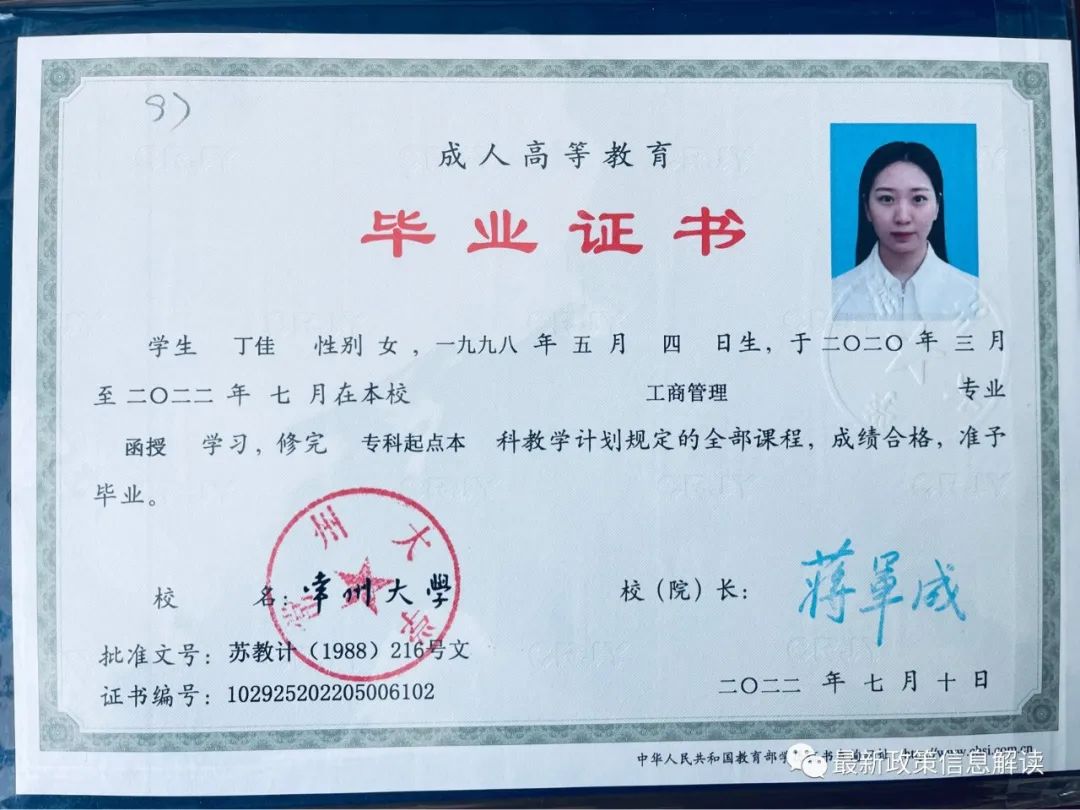 9)
成人高等教育
毕业证书
学生 丁佳 性别 女,一九九八 年 五 月 四 日生,于二〇二〇 年 三 月
至二〇二二 年 七 月在本校 工商管理 专业
函授 学习,修完 专科起点本 科教学计划规定的全部课程,成绩合格,准予
毕业。
常州大学
校 名:常州大學
校(院)长:蒋軍成
批准文号:苏教计(1988)216号文
证书编号:102925202205006102
二〇二二 年 七 月 十 日
中华人民共和国教育部学 证书查询网址:http://www.chsi.com.cn
最新政策信息解读